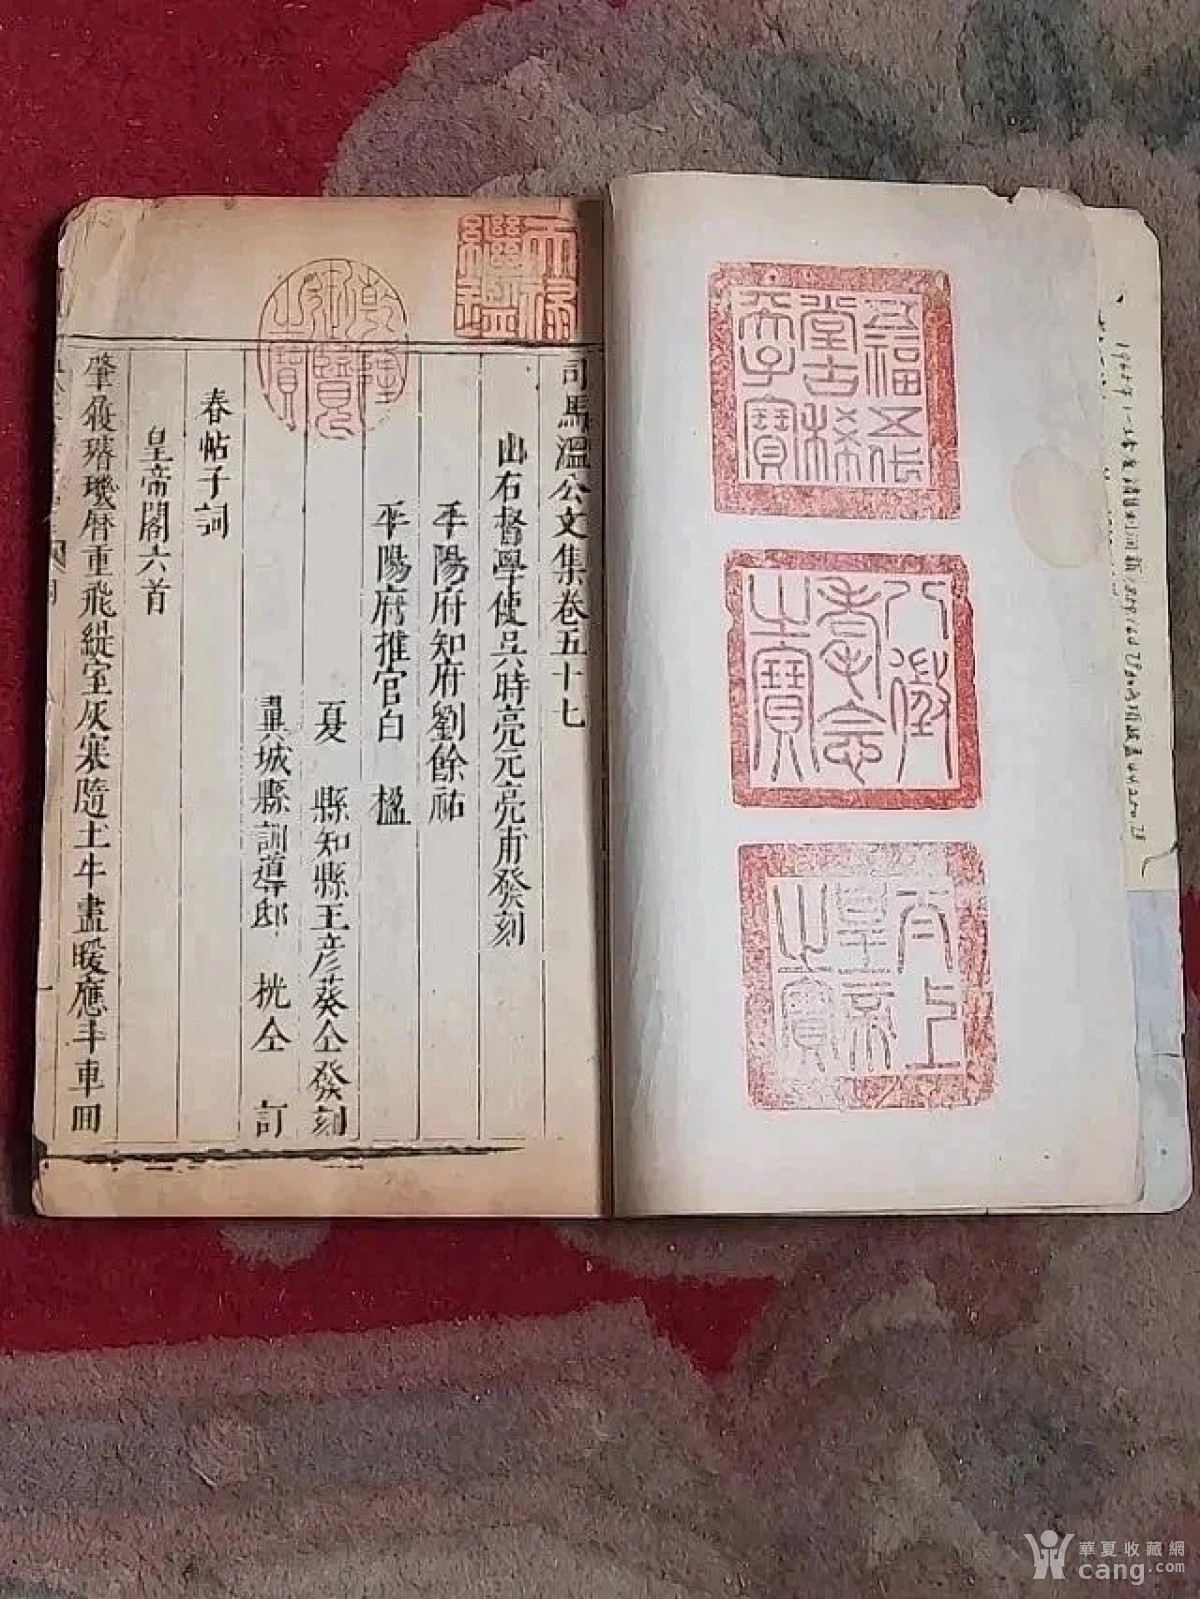 五福五代
堂古稀
天子寶
八徵
耄念
之寶
太上
皇帝
之寶
天祿
繼鑑
乾隆
御覽
之寶
司馬溫公文集卷五十七
山右督學使吳時亮元亮甫發刻
平陽府知府劉餘祐
平陽府推官白 楹
夏 縣知縣王彥葵仝發刻
城縣訓導邸 桄仝 訂
春帖子詞
皇帝閣六首
肇履璿璣曆重飛緹室灰寒隨土牛盡暖應斗車回
華夏收藏網
cang.com